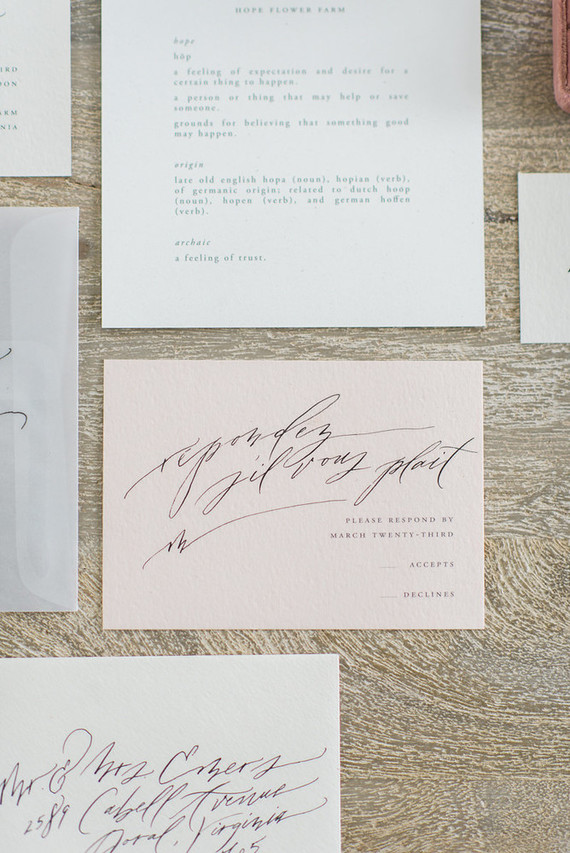 HOPE FLOWER FARM
hope
hōp
a feeling of expectation and desire for a
certain thing to happen.
a person or thing that may help or save
someone.
grounds for believing that something good
may happen.
origin
late old english hopa (noun), hopian (verb),
of germanic origin; related to dutch hoop
(noun), hopen (verb), and german hoffen
(verb).
archaic
a feeling of trust.
repondez
s'il vous plait
M
PLEASE RESPOND BY
MARCH TWENTY-THIRD
ACCEPTS
DECLINES
Mr. & Mrs
2589 Cabell Avenue
Virginia